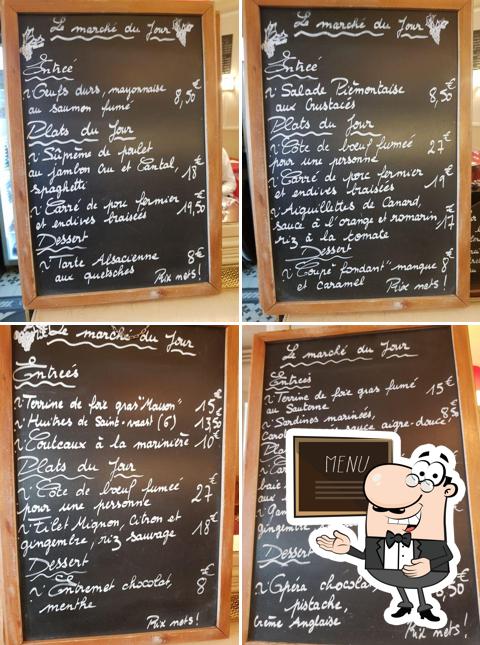 Le marché du Jour
Entrée
Oeufs durs, mayonnaise
au saumon fumé 8,50€
Plats du Jour
Suprème de poulet
au jambon cru et Cantal, 18€
spaghetti
Carré de porc fermier
et endives braisées 19,50€
Dessert
Tarte Alsacienne 8€
aux quetsches
Prix nets!
Le marché du Jour
Entrée
Salade Piémontaise
aux Crustacés 8,50€
Plats du Jour
Côte de boeuf fumée 27€
pour une personne
Carré de porc fermier
et endives braisées 19€
Aiguillettes de Canard,
sauce à l'orange et romarin 17€
riz à la tomate
Dessert
Coupe "fondant" mangue 8€
et caramel Prix nets!
Le marché du Jour
Entrées
Terrine de foie gras "Maison" 15€
Huitres de Saint-vaast (6) 13,50€
Couteaux à la marinière 10€
Plats du Jour
Côte de boeuf fumée 27€
pour une personne
Filet Mignon, Citron et
gingembre, riz sauvage 18€
Dessert
Entremet chocolat, 8€
menthe
Prix nets!
Le marché du Jour
Entrées
Terrine de foie gras fumé 15€
au Sauterne
Sardines marinées,
sauce aigre-douce
MENU
gingembre
Dessert
Opéra chocolat,
pistache,
Crème Anglaise
Prix nets!